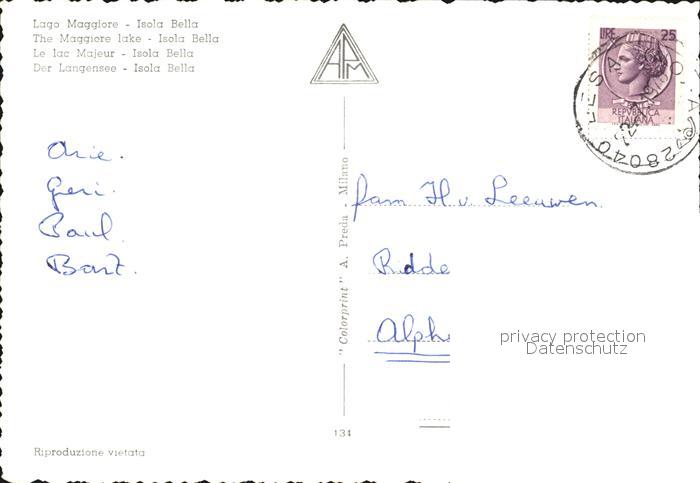 Lago Maggiore - Isola Bella
The Maggiore lake - Isola Bella
Le lac Majeur - Isola Bella
Der Langensee - Isola Bella
APM
LIRE 25
REPVBBLICA
ITALIANA
28040 LESA
Arie.
Geri.
Paul
Bart.
"Colorprint" A. Preda Milano
fam H. v. Leeuwen.
Ridde
Alph
privacy protection
Datenschutz
134
Riproduzione vietata